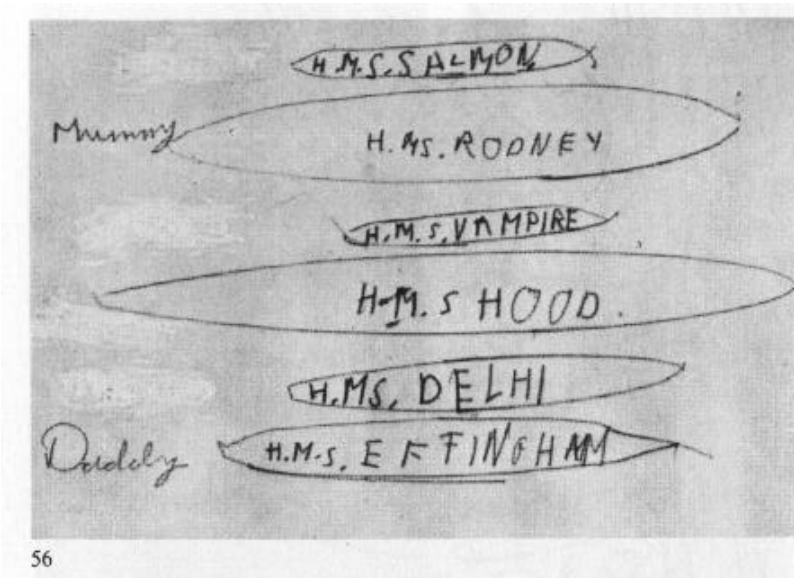 H.M.S. SALMON
Mummy H.MS. RODNEY
H.M.S. VAMPIRE
H-M.S HOOD.
H.MS. DELHI
Daddy H.M-S. EFFINGHAM
56